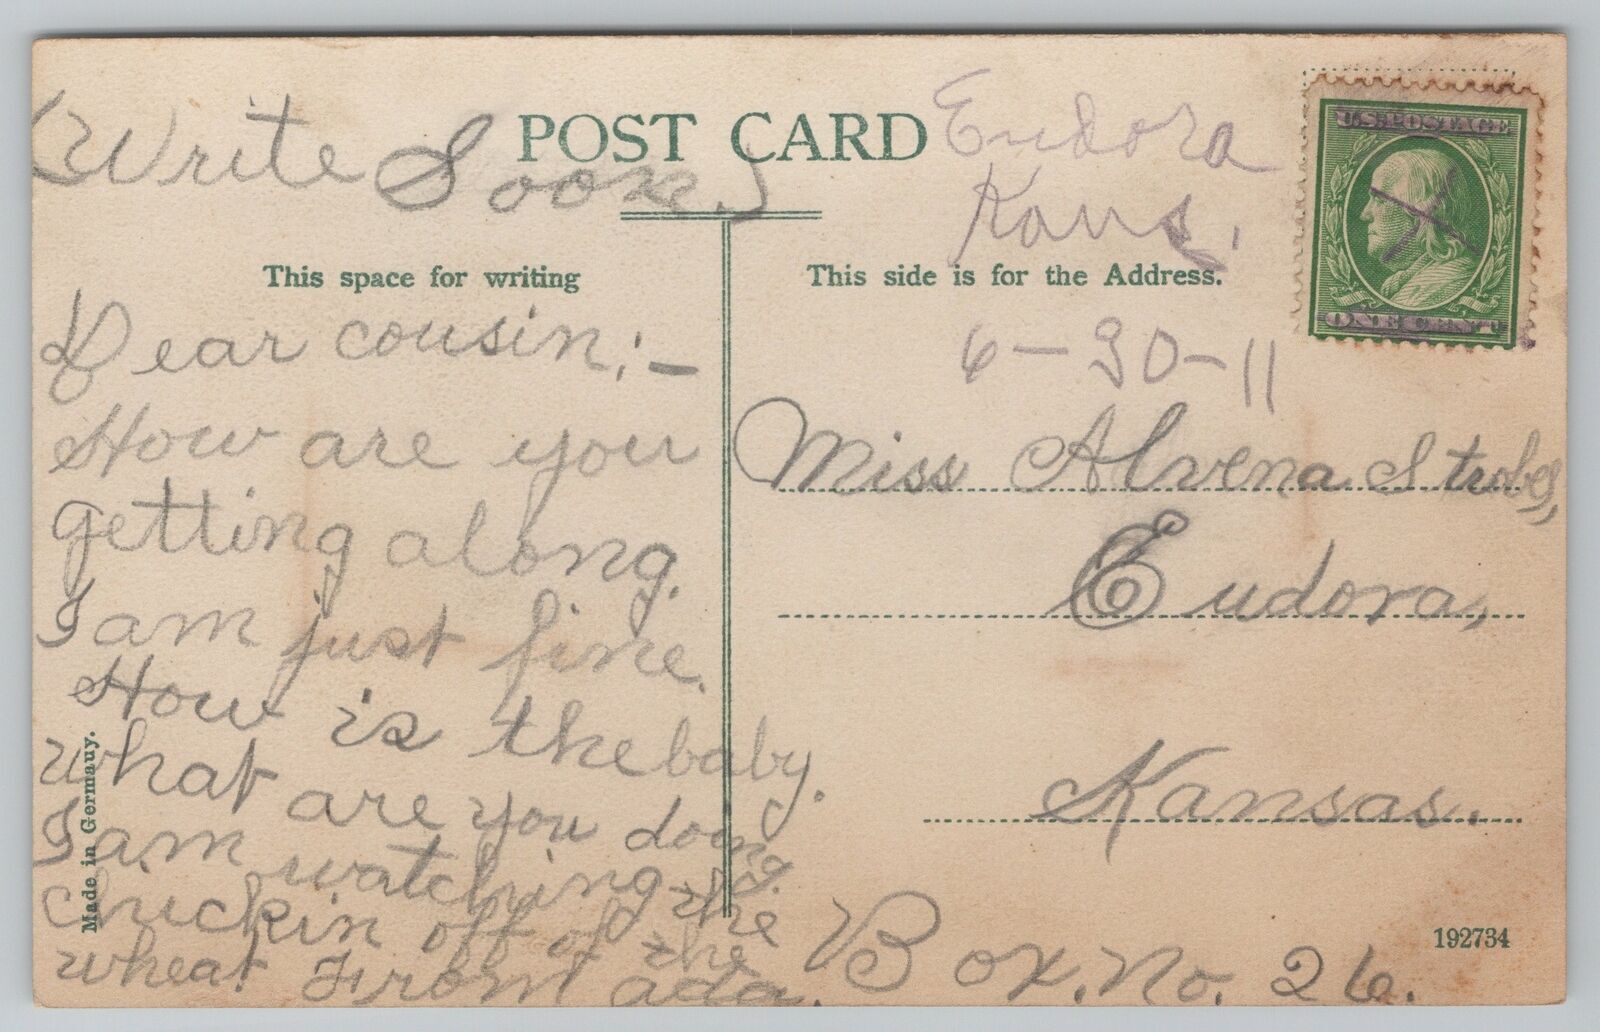 (Write Soon.)
POST CARD
Eudora
Kans.
U.S. POSTAGE
ONE CENT
This space for writing
This side is for the Address.
6-30-11
Dear cousin:-
How are you
getting along.
I am just fine.
How is the baby.
What are you doong.
I am watching the
chickin off of the
wheat. From ada.
Miss Alvena
Eudora,
Kansas.
Box. No. 26.
Made in Germany.
192734